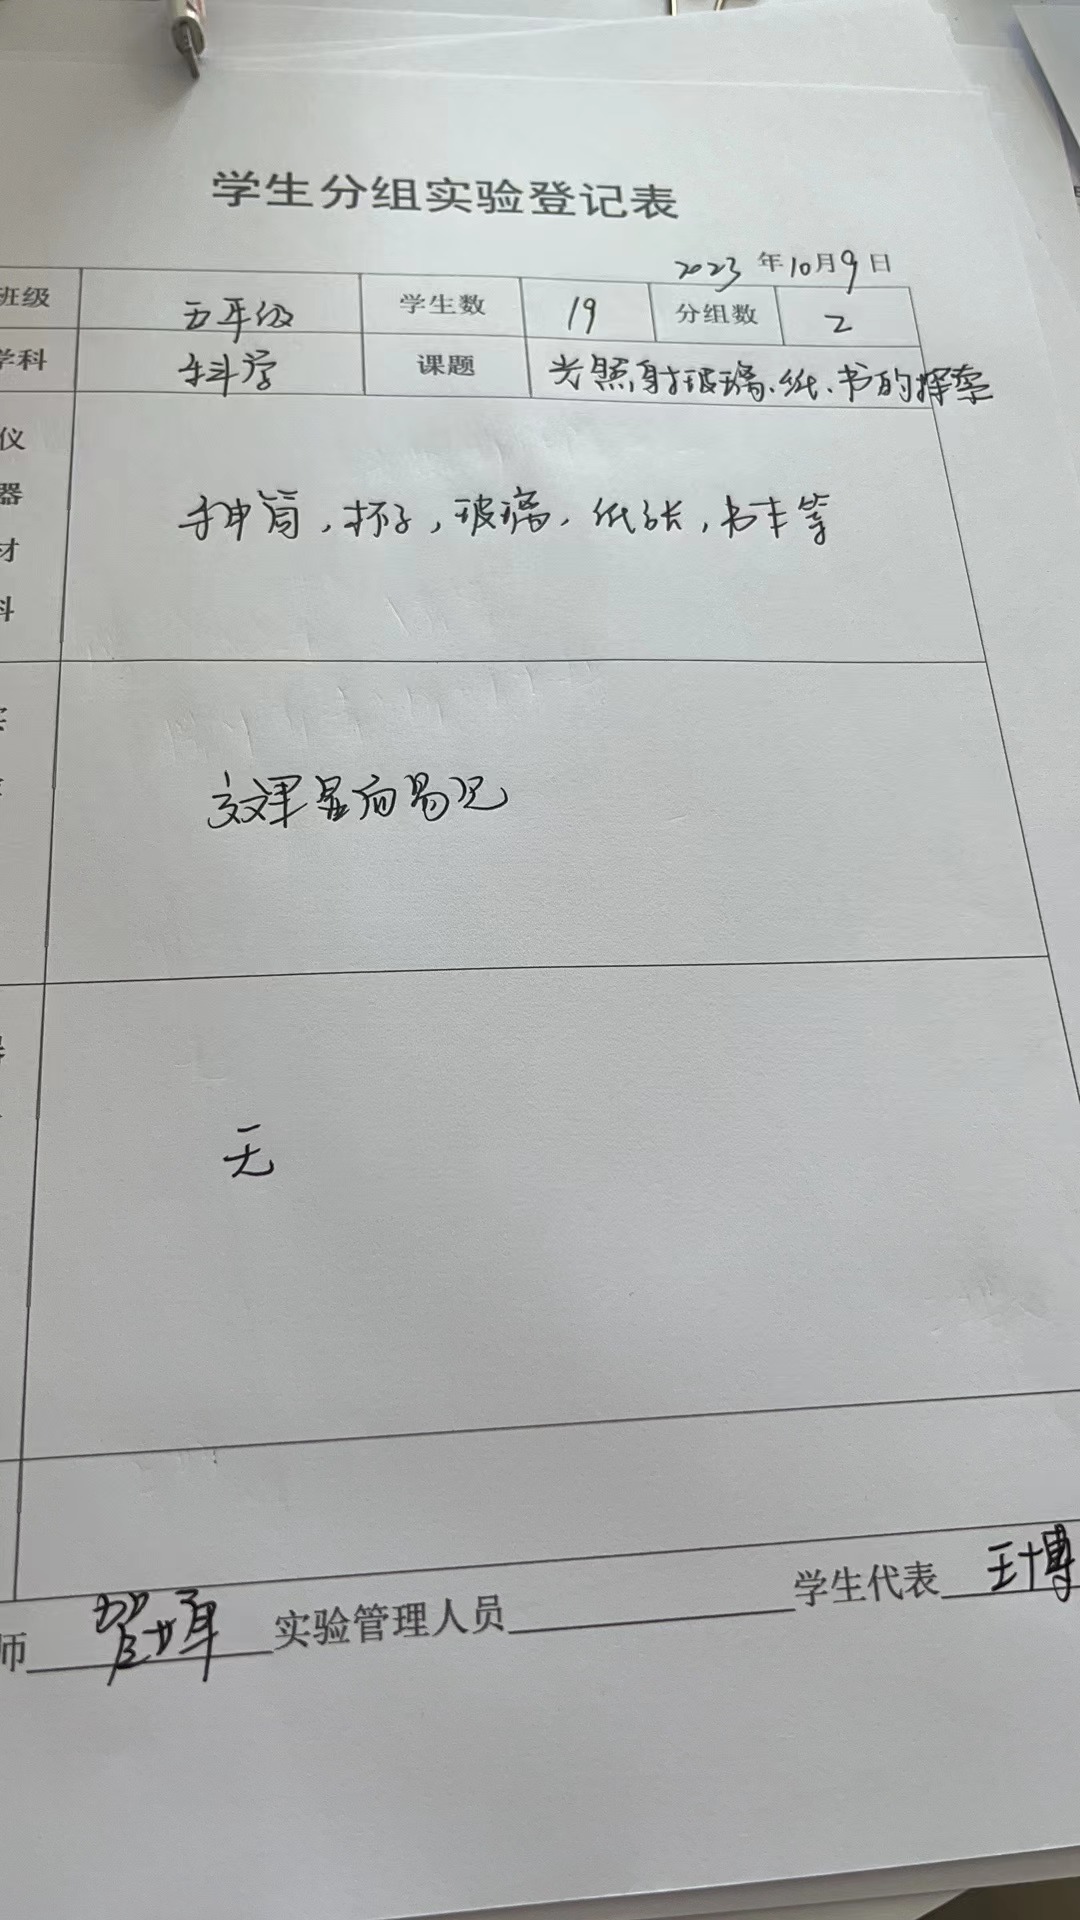 学生分组实验登记表
2023年10月9日
班级 五年级 学生数 19 分组数 2
学科 科学 课题 光照射玻璃、纸、书的探索
仪
器
材
料
手电筒，杯子，玻璃，纸张，书本等
效果显而易见
无
师 实验管理人员 学生代表 王博